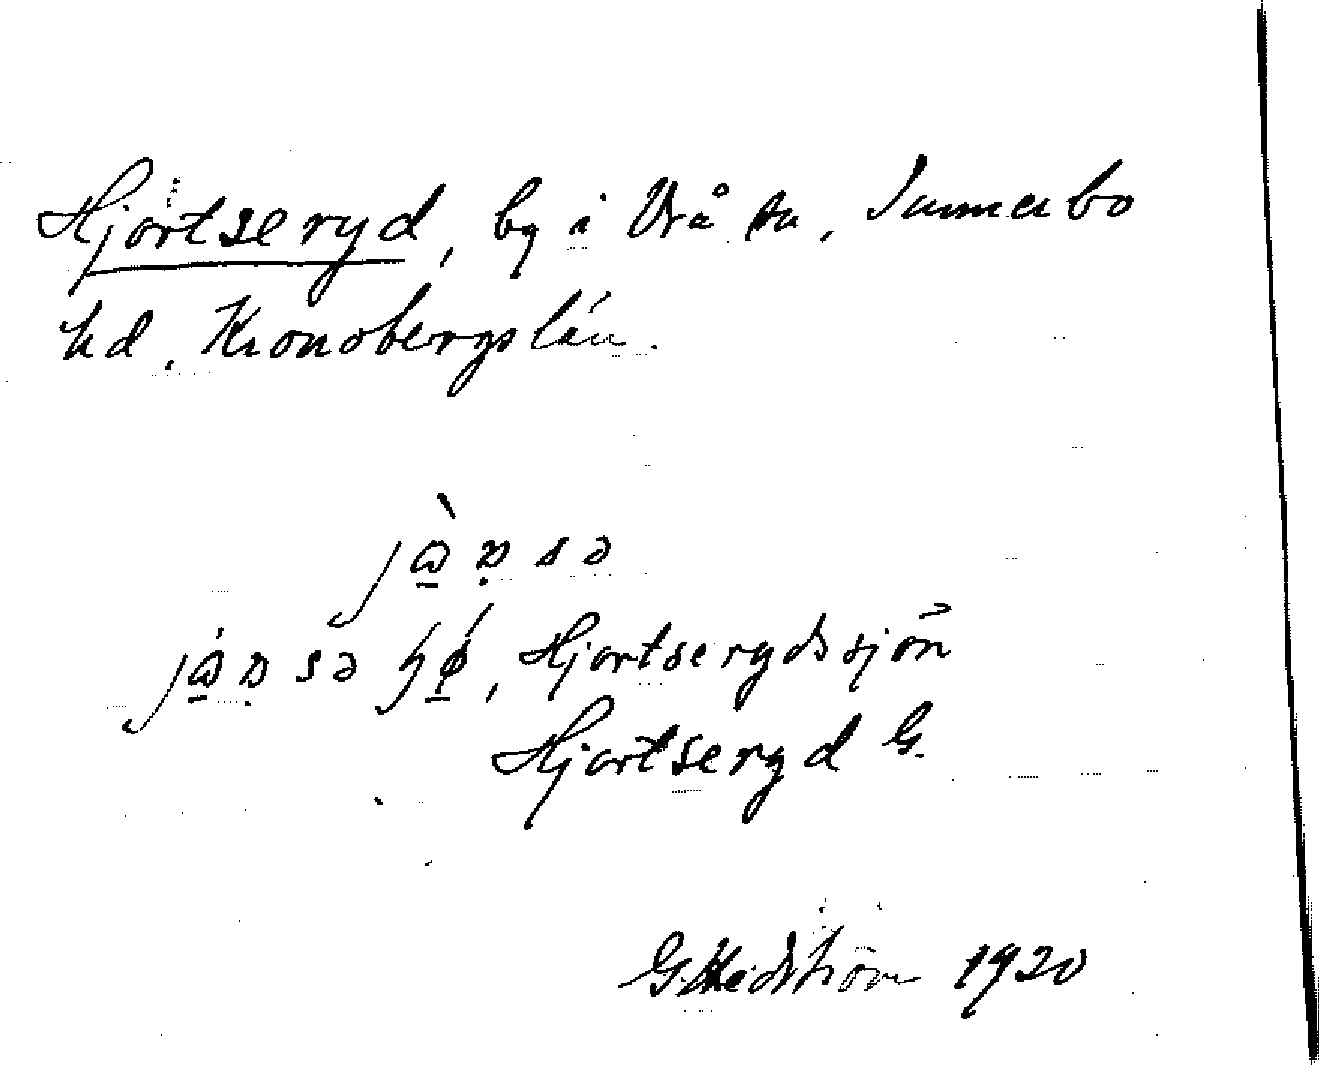 Hjortseryd, by i Vrå sn, Sunnerbo
hd. Kronobergs län.
Hjortserydssjön
Hjortseryd G.
G. Hedström 1920